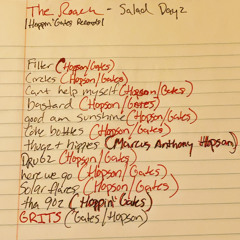 The Roach - Salad Dayz
|Hoppin' Gates Records|
Filler (Hopson/Gates)
Circles (Hopson/Gates)
Can't help myself (Hopson/Gates)
bastard (Hopson/Gates)
good am sunshine (Hopson/Gates)
Coke bottles (Hopson/Gates)
thugz + hippies (Marcus Anthony Hopson)
Drugz (Hopson/Gates)
here we go (Hopson/Gates)
Solar flares (Hopson/Gates)
tha 90z (Hoppin' Gates)
GRITS (Gates/Hopson)